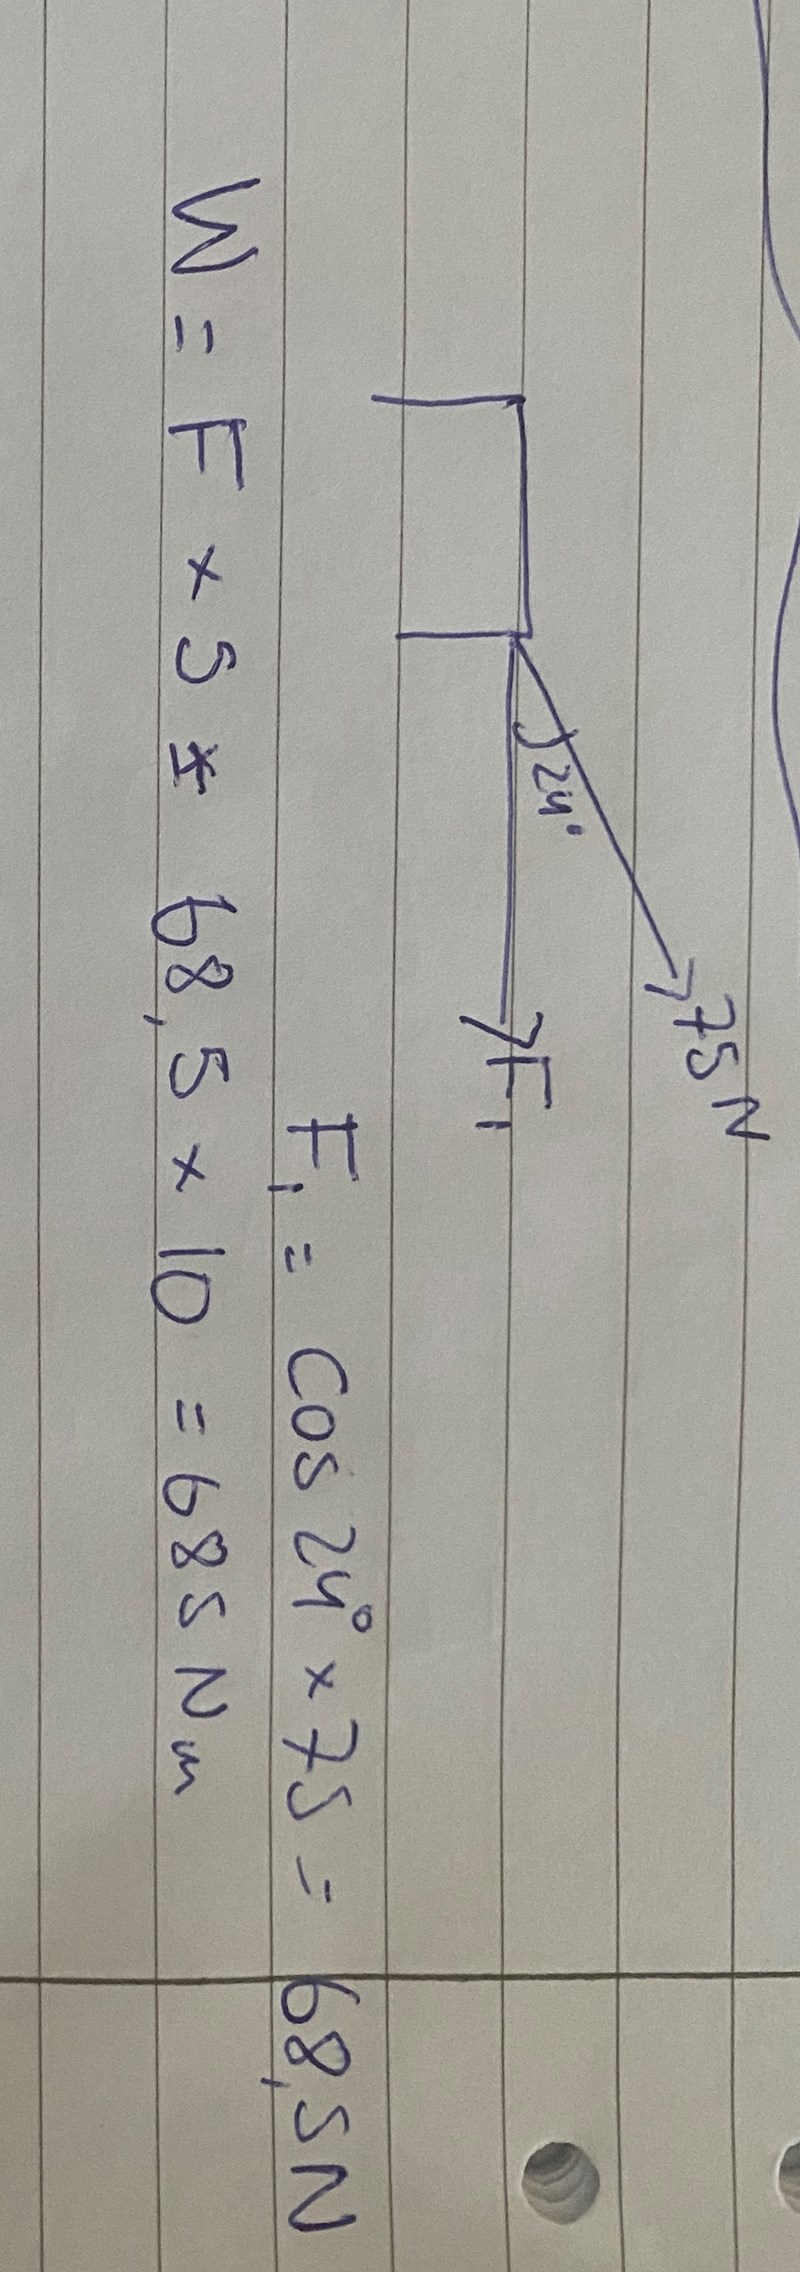 75N
24°
F₁
F₁ = cos 24° × 75 = 68,5N
W = F × S = 68,5 × 10 = 685 Nm